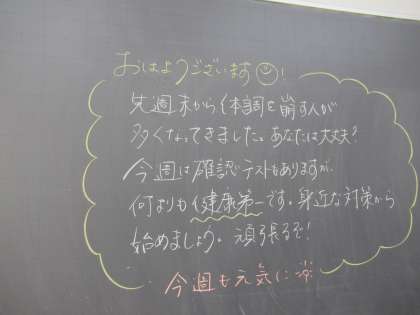 おはようございます!
先週末から体調を崩す人が
多くなってきました。あなたは大丈夫?
今週は確認テストもありますが、
何よりも健康第一です。身近な対策から
始めましょう。頑張るぞ!
今週も元気に